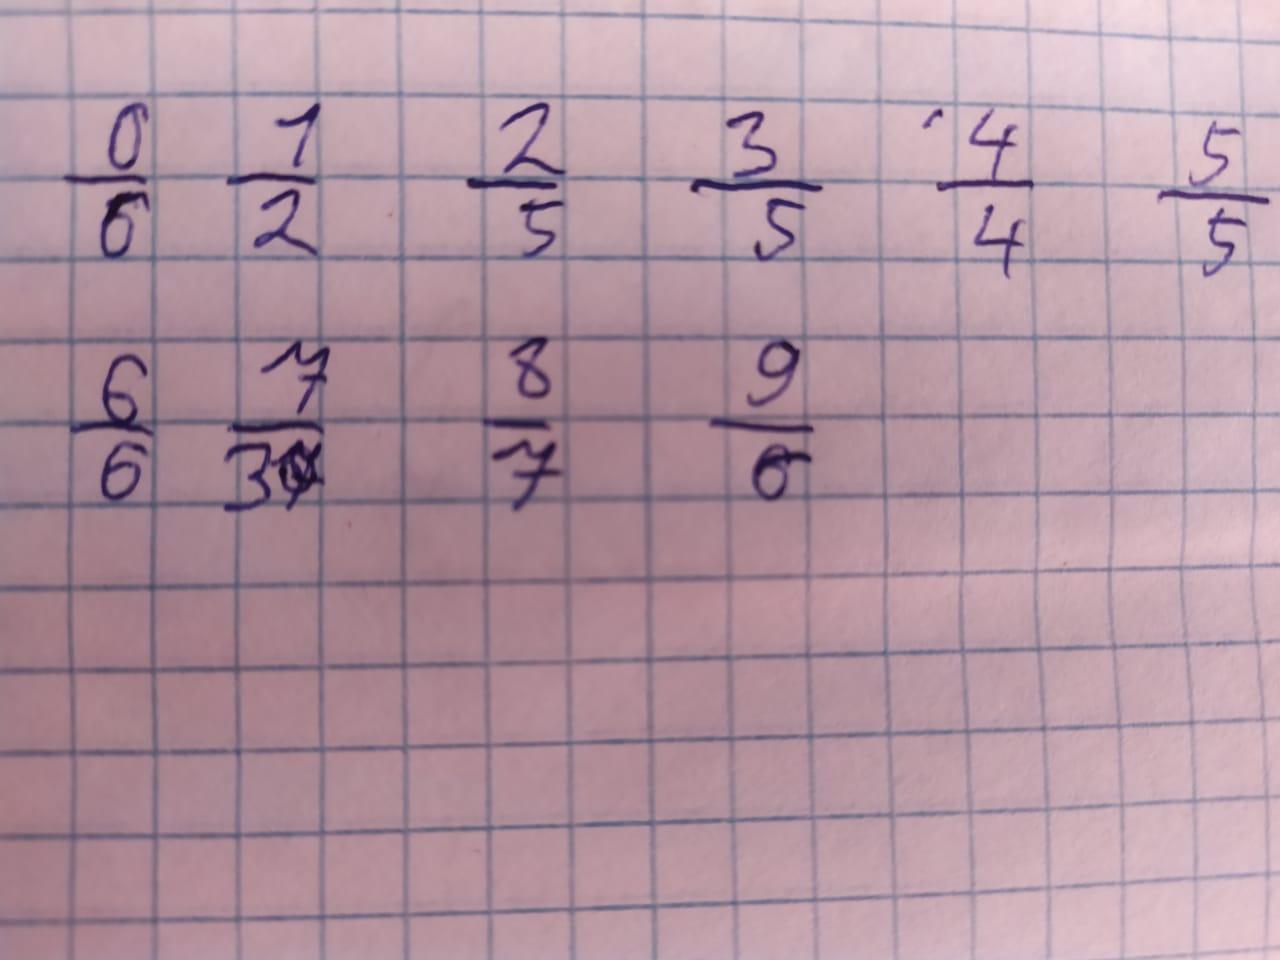 0/6 1/2 2/5 3/5 4/4 5/5
6/6 7/3 8/7 9/6